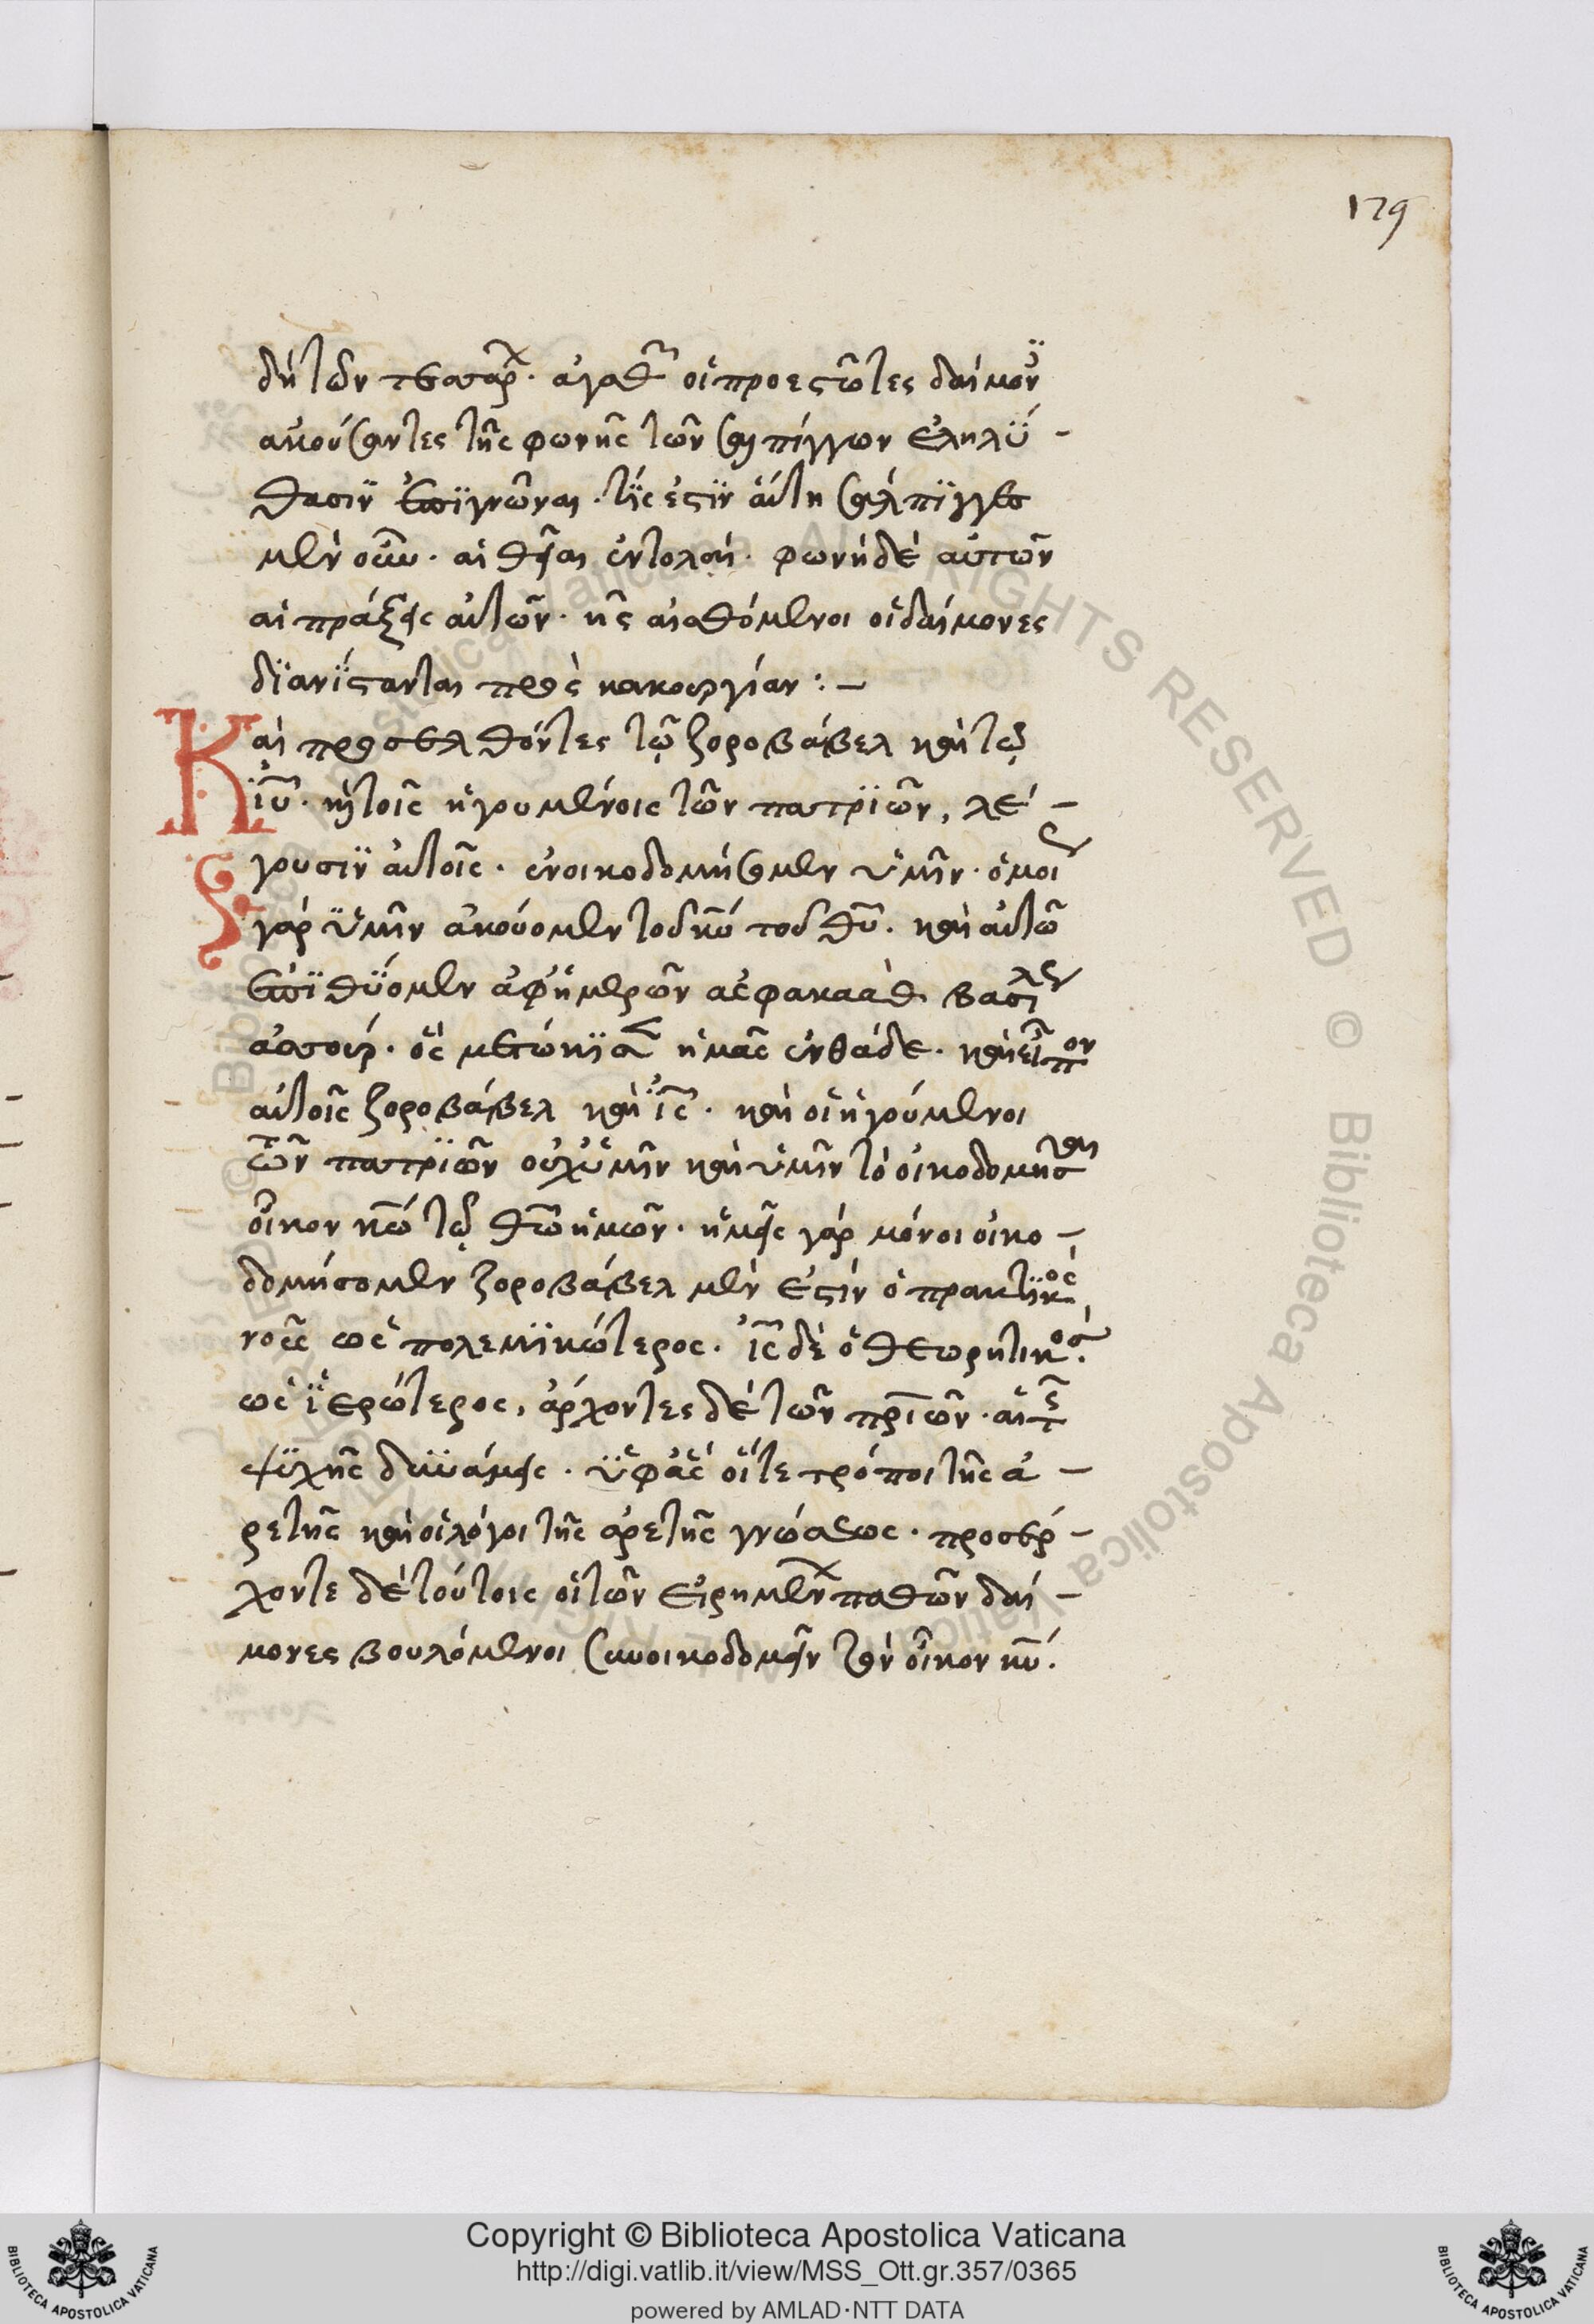 179
δὴ τῶν τεσσάρ· ἀγαθ οἱ προεστῶτες δαίμον
ἀκούσαντες τῆς φωνῆς τῶν σαλπίγγων ἐληλύ-
θασιν ἐπϊγνῶναι· τίς ἐστϊν αὕτη σάλπϊγγες
μὲν οὖν· αἱ θεῖαι ἐντολαί· φωνὴ δὲ αὐτῶν
αἱ πράξεις αὐτῶν· ἧς αἰσθόμενοι οἱ δαίμονες
δϊανίστανται πρὸς κακουργίαν:-
Καὶ προσελθόντες τῷ ζοροβάβελ καὶ τῷ
ἰῦ· καὶ τοῖς ἡγουμένοις τῶν πατρϊῶν, λέ-
γουσϊν αὐτοῖς· ἐνοικοδομήσωμεν ὑμῖν· ὁμοί
γὰρ ὑμῖν ἀκούομεν τοῦ κυ τοῦ θυ. καὶ αὐτῶ
ἐπϊθύομεν ἀφ' ἡμερῶν ἀσφακαὰθ βασιλε
ἀσσούρ· ὃς μετώκϊσεν ἡμᾶς ἐνθάδε· καὶ εἶπον
αὐτοῖς ζοροβάβελ καὶ ις· καὶ οἱ ἡγούμενοι
τῶν πατρϊῶν οὐχ ὑμῖν καὶ ὑμῖν τὸ οἰκοδομῆσαι
οἶκον κω τῷ θω ἡμῶν· ἡμεῖς γὰρ μόνοι οἰκο-
δομήσομεν ζοροβάβελ μὲν ἐστὶν ὁ πρακτϊκός
νοῦς ὡς πολεμϊκώτερος· ις δὲ ὁ θεωρητικός.
ὡς ἱερώτερος, ἄρχοντες δὲ τῶν πριῶν· αἱ τ
ψϋχῆς δυνάμεις· ὑφ' ἃς οἵ τε τρόποι τῆς ἀ-
ρετῆς καὶ οἱ λόγοι τῆς ἀρετῆς γνώσεως· προσέρ-
χοντε δὲ τούτοις οἱ τῶν εἰρημέν παθῶν δαί-
μονες βουλόμενοι συνοικοδομεῖν τὸν οἶκον κυ.
Copyright © Biblioteca Apostolica Vaticana
http://digi.vatlib.it/view/MSS_Ott.gr.357/0365
powered by AMLAD·NTT DATA